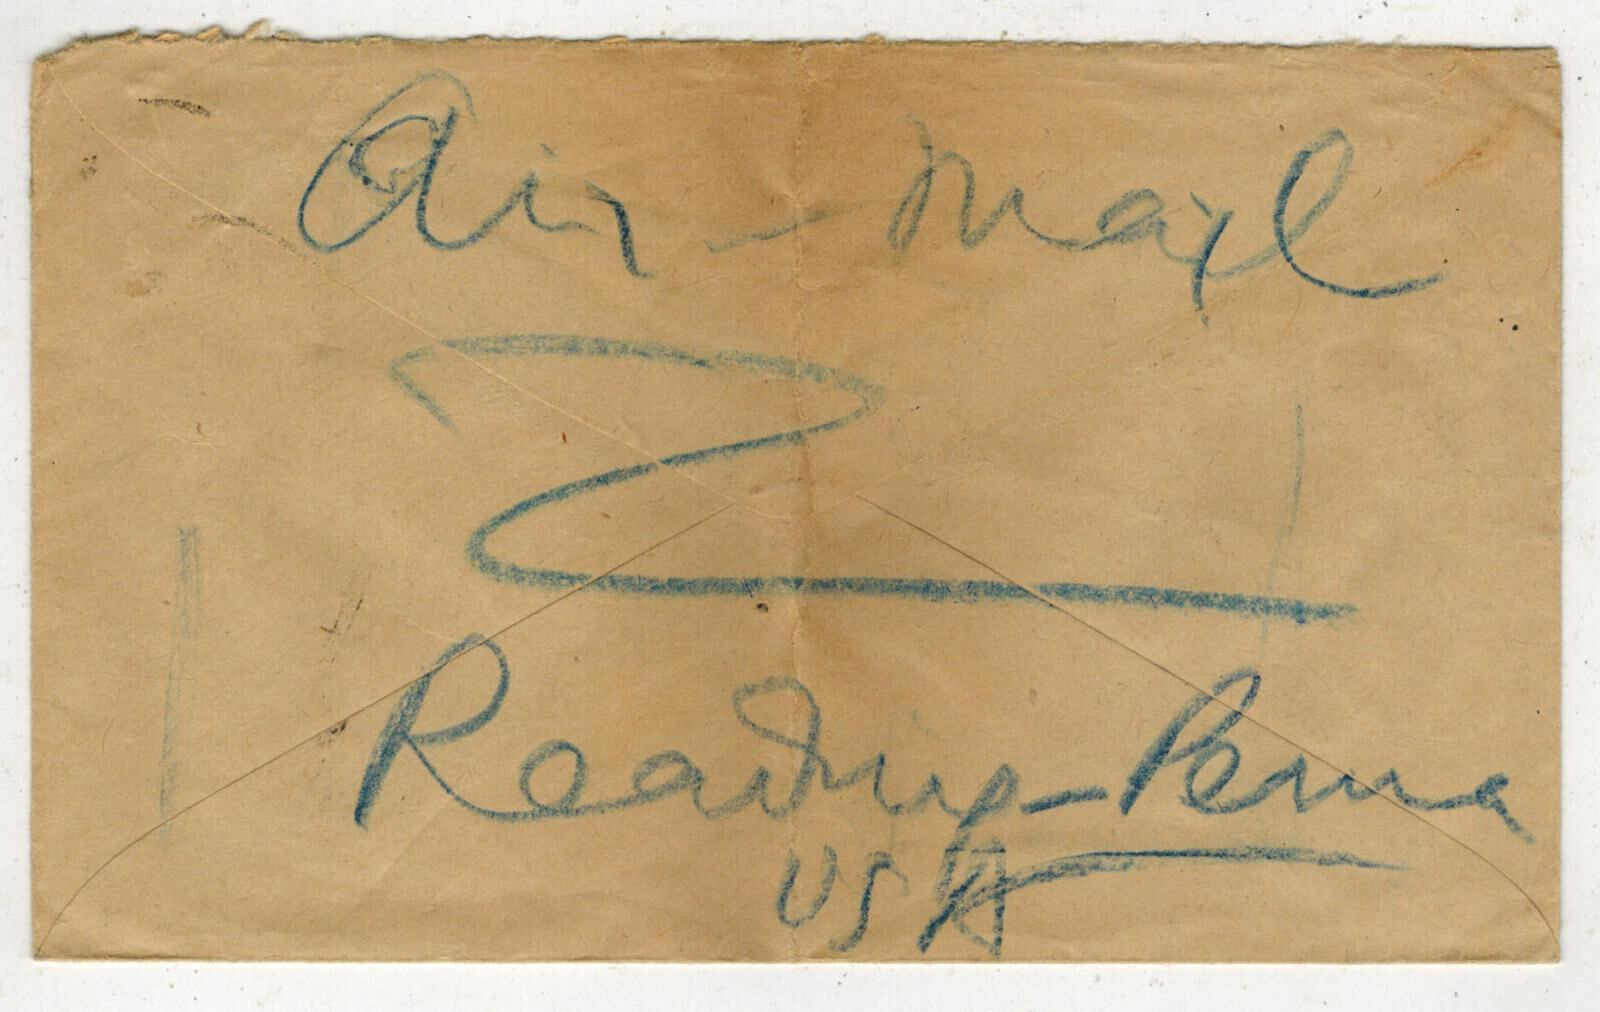 Air-Mail
Reading-Penna
USA